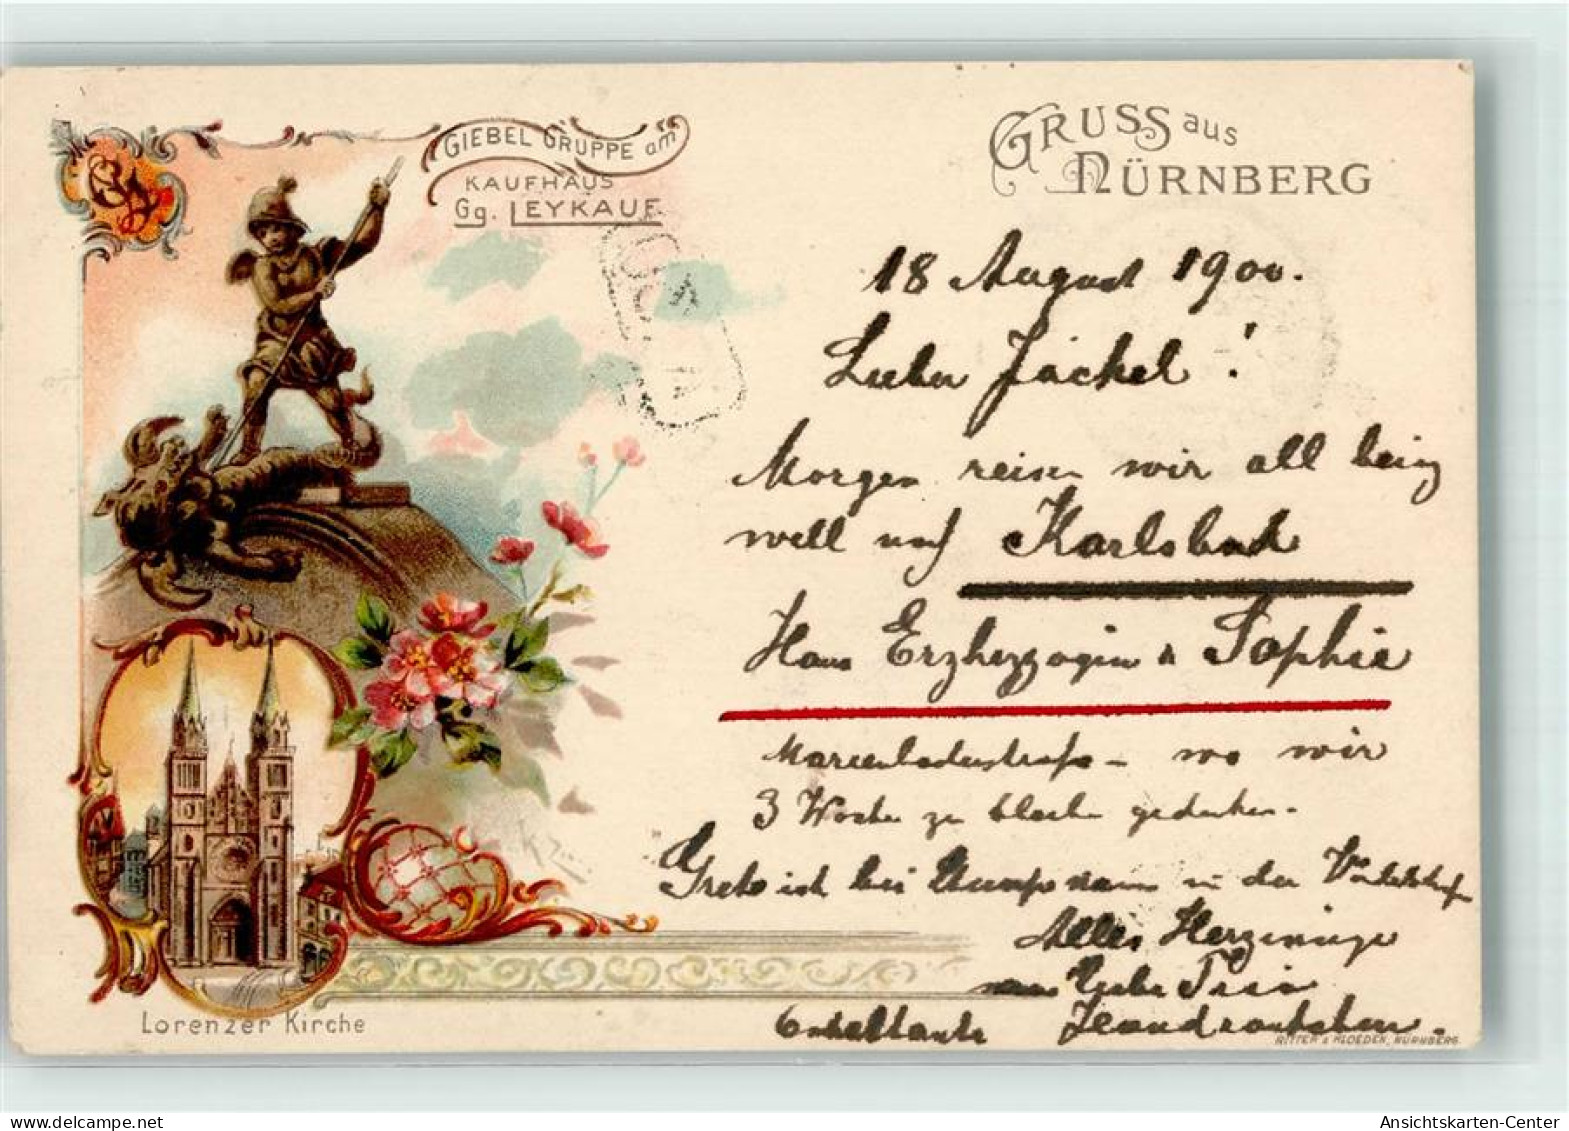 GIEBEL GRUPPE am
KAUFHAUS
Gg. LEYKAUF
GRUSS aus
NÜRNBERG
18 August 1900.
Lieber Jäckel!
Morgen reisen wir all
well nach Karlsbad
Haus Erzherzogin Sophie
Marienbaderstraße - wo wir
3 Wochen zu bleiben gedenken.
Grete ist bei in der
Alles Herzinnige
Trio
Lorenzer Kirche
RITTER & KLOEDEN, NÜRNBERG
Ansichtskarten-Center